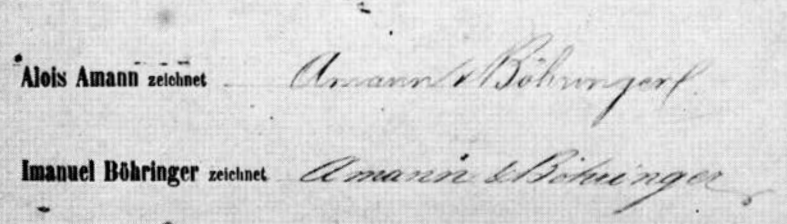 Alois Amann zeichnet Amann & Böhringer
Imanuel Böhringer zeichnet Amann & Böhringer